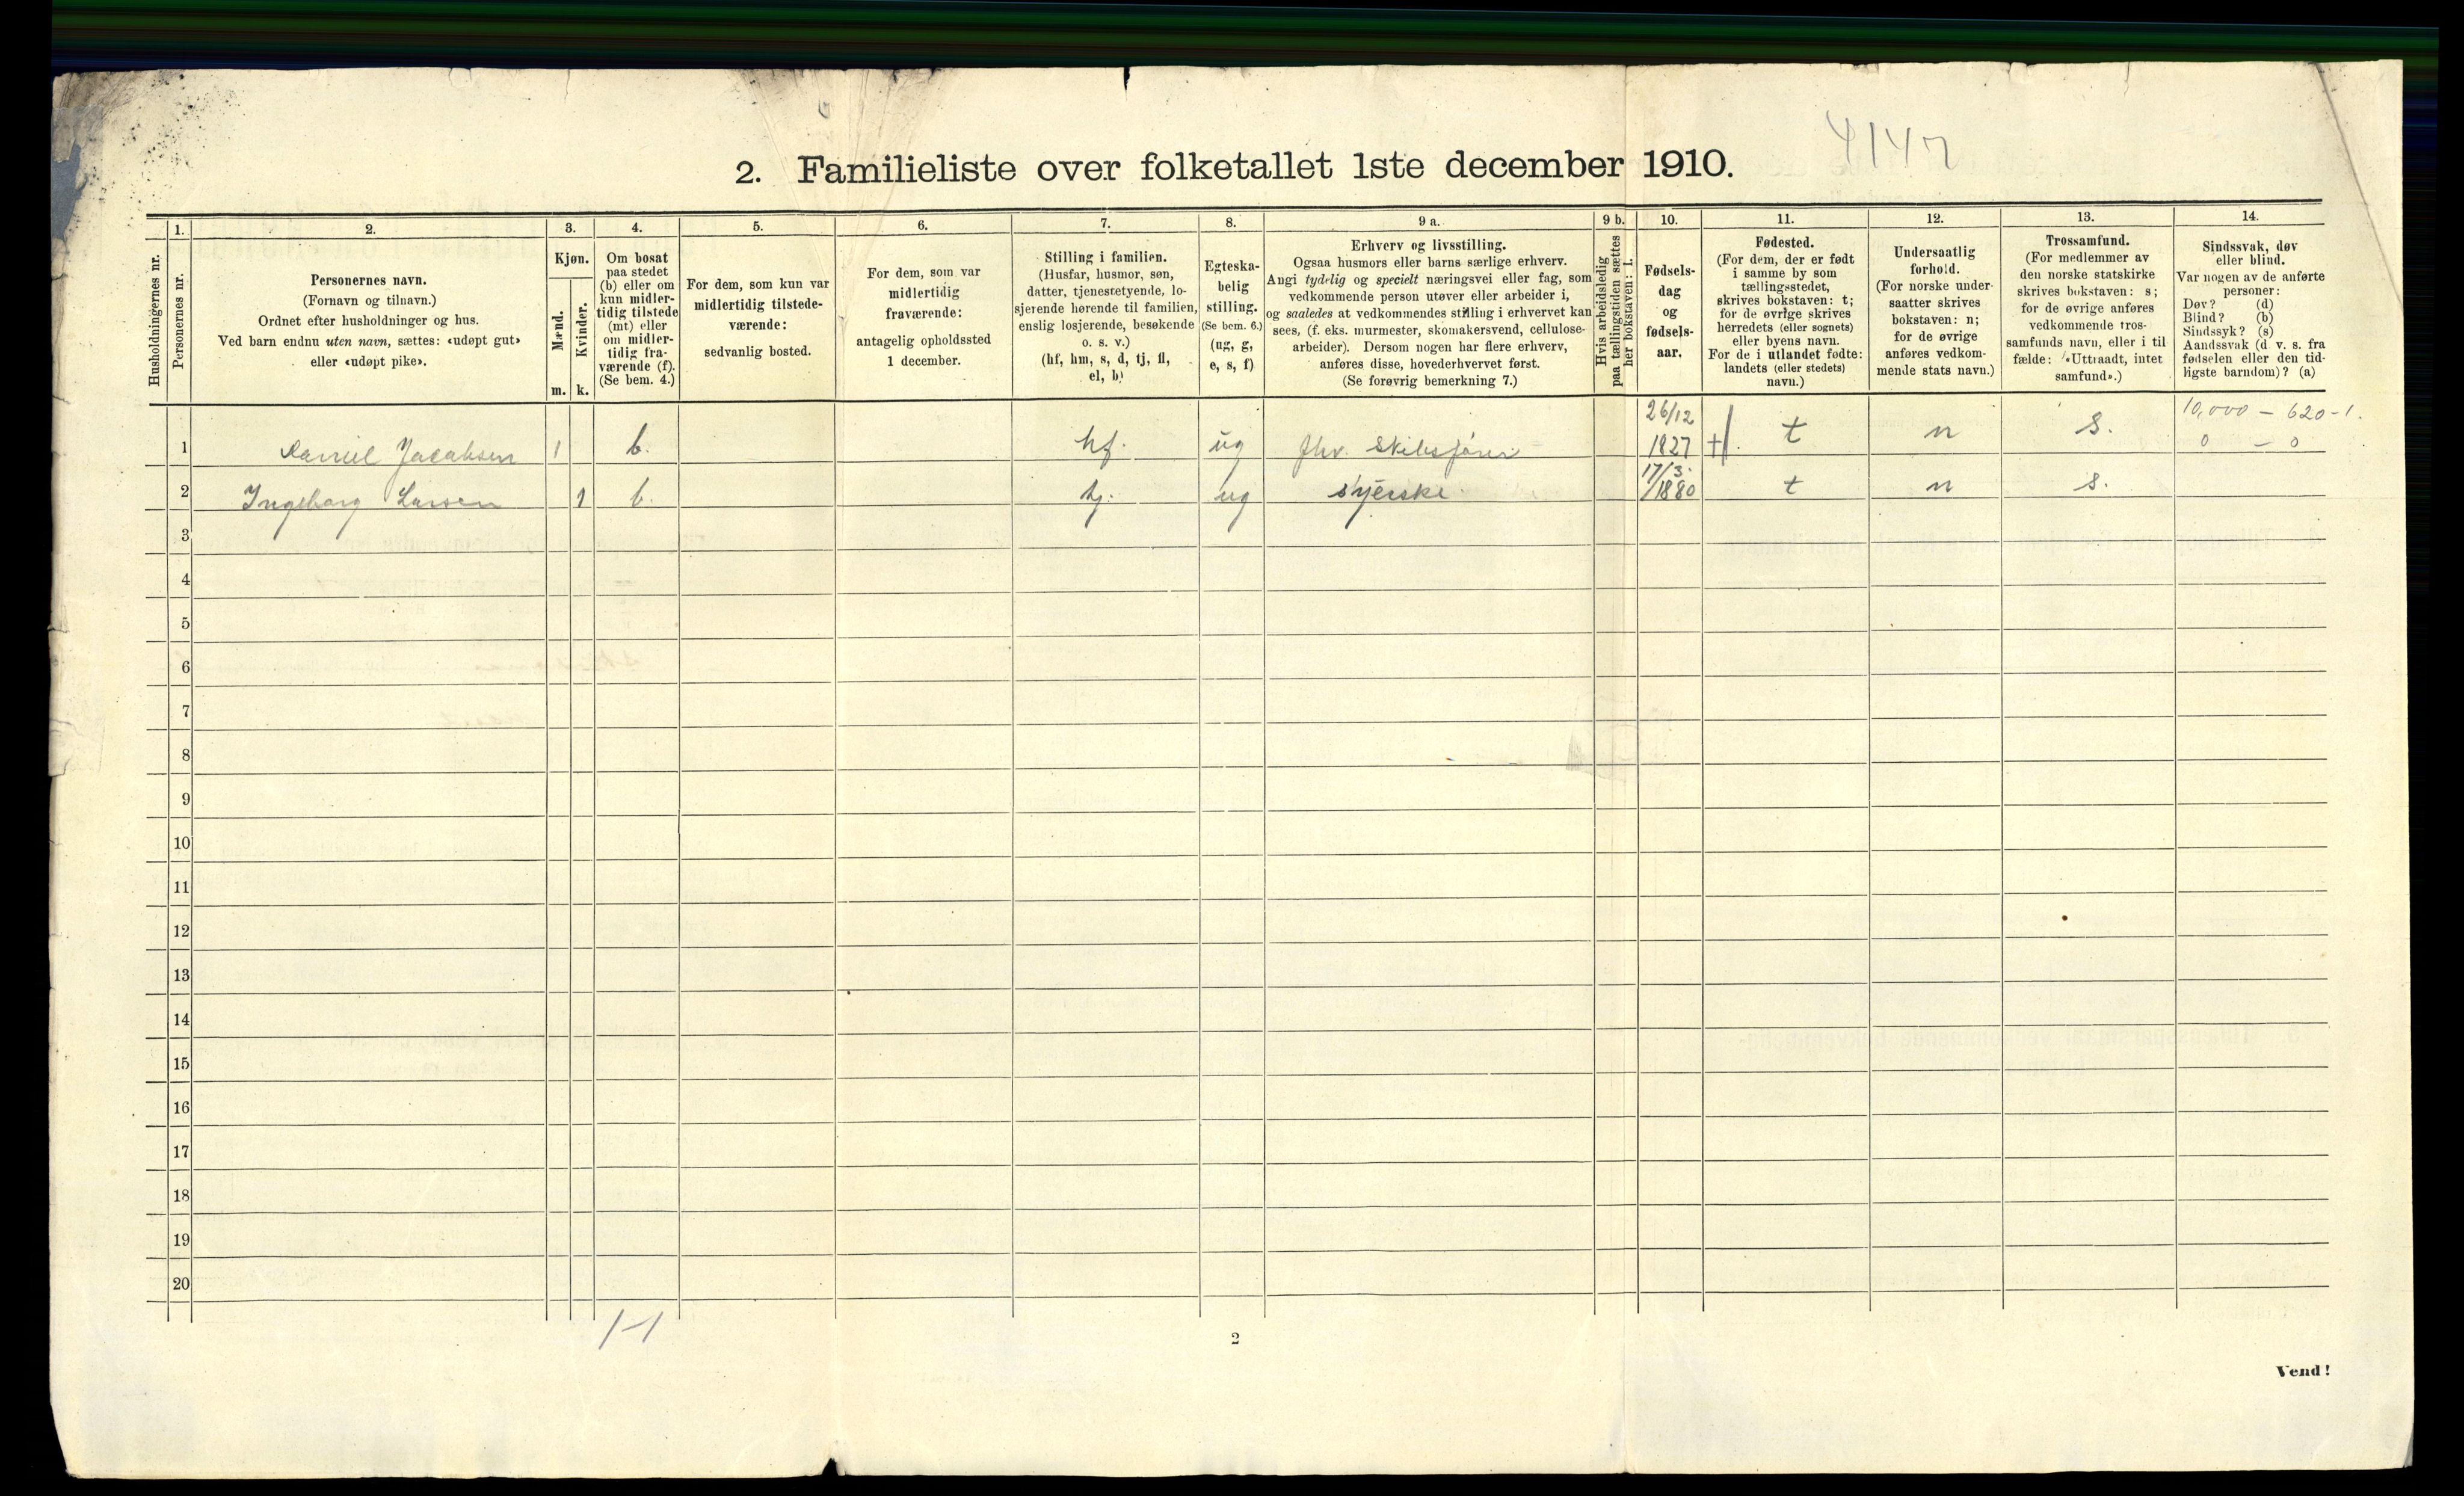 4147
2. Familieliste over folketallet 1ste december 1910.
Husholdningernes nr.
1.
Personernes nr.
2.
Personernes navn.
(Fornavn og tilnavn.)
Ordnet efter husholdninger og hus.
Ved barn endnu uten navn, sættes: «udøpt gut»
eller «udøpt pike».
3.
Kjøn.
Mænd.
Kvinder.
m. k.
4.
Om bosat
paa stedet
(b) eller om
kun midler-
tidig tilstede
(mt) eller
om midler-
tidig fra-
værende (f).
(Se bem. 4.)
5.
For dem, som kun var
midlertidig tilstede-
værende:
sedvanlig bosted.
6.
For dem, som var
midlertidig
fraværende:
antagelig opholdssted
1 december.
7.
Stilling i familien.
(Husfar, husmor, søn,
datter, tjenestetyende, lo-
sjerende hørende til familien,
enslig losjerende, besøkende
o. s. v.)
(hf, hm, s, d, tj, fl,
el, b)
8.
Egteska-
belig
stilling.
(Se bem. 6.)
(ug, g,
e, s, f)
9 a.
Erhverv og livsstilling.
Ogsaa husmors eller barns særlige erhverv.
Angi tydelig og specielt næringsvei eller fag, som
vedkommende person utøver eller arbeider i,
og saaledes at vedkommendes stilling i erhvervet kan
sees, (f. eks. murmester, skomakersvend, cellulose-
arbeider). Dersom nogen har flere erhverv,
anføres disse, hovederhvervet først.
(Se forøvrig bemerkning 7.)
9 b.
Hvis arbeidsledig
paa tællingstiden sættes
her bokstaven: l.
10.
Fødsels-
dag
og
fødsels-
aar.
11.
Fødested.
(For dem, der er født
i samme by som
tællingsstedet,
skrives bokstaven: t;
for de øvrige skrives
herredets (eller sognets)
eller byens navn.
For de i utlandet fødte:
landets (eller stedets)
navn.)
12.
Undersaatlig
forhold.
(For norske under-
saatter skrives
bokstaven: n;
for de øvrige
anføres vedkom-
mende stats navn.)
13.
Trossamfund.
(For medlemmer av
den norske statskirke
skrives bokstaven: s;
for de øvrige anføres
vedkommende tros-
samfunds navn, eller i til
fælde: «Uttraadt, intet
samfund».)
14.
Sindssvak, døv
eller blind.
Var nogen av de anførte
personer:
Døv? (d)
Blind? (b)
Sindssyk? (s)
Aandssvak (d v. s. fra
fødselen eller den tid-
ligste barndom)? (a)
1 Daniel Jacobsen 1 b. hf. ug fhv. Skibsfører 26/12 1827 + t n s. 10,000 – 620-1. 0 – 0
2 Ingeborg Larsen 1 b. tj. ug syerske. 17/3. 1880 t n s.
3
4
5
6
7
8
9
10
11
12
13
14
15
16
17
18
19
20
1-1
2
Vend!